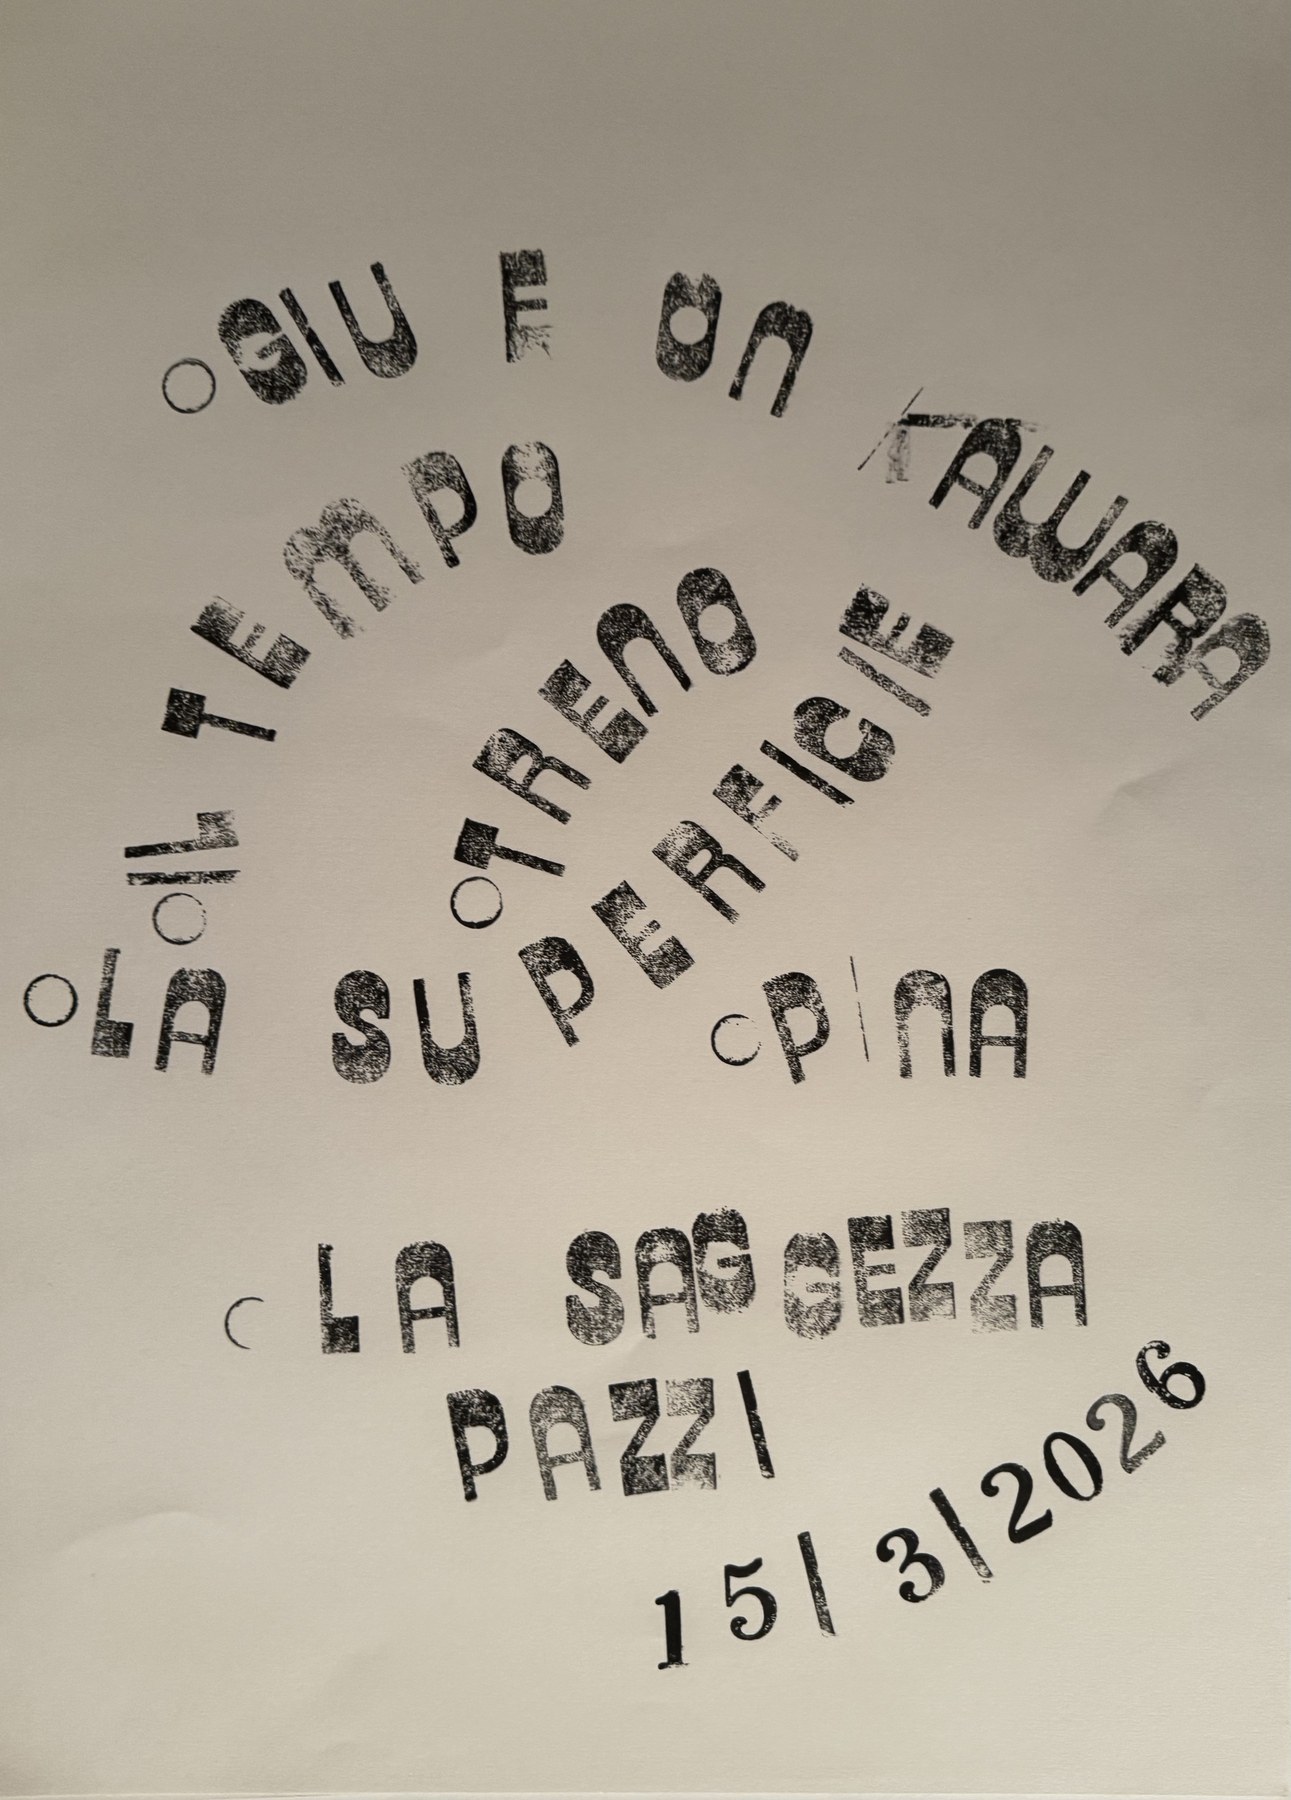 GIU E ON KAWARA
IL TEMPO
TRENO
LA SUPERFICIE
PINA
LA SAGGEZZA
PAZZI
15/3/2026